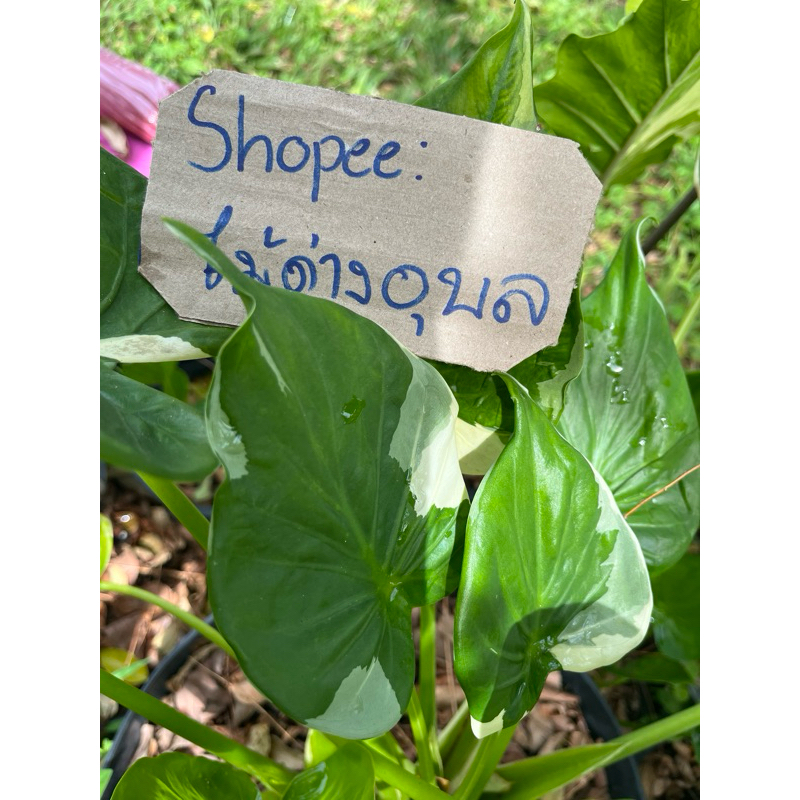 Shopee:
ไม้ด่างอุบล